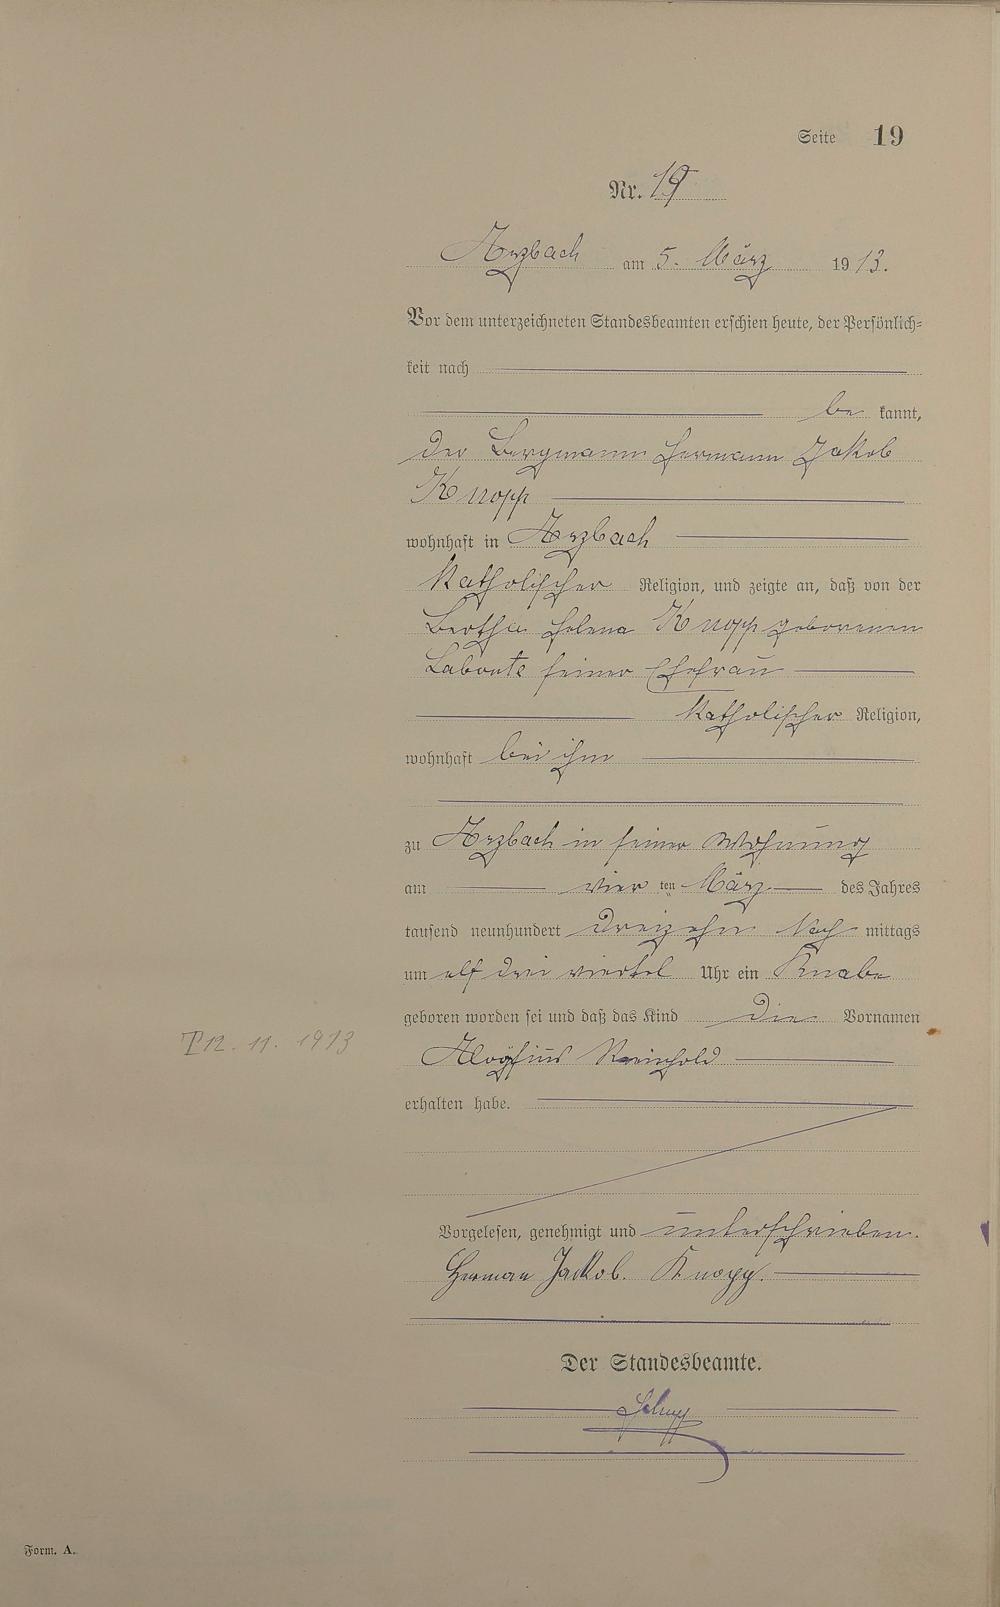 Seite 19
Nr. 19
Arzbach am 5. März 1913.
Vor dem unterzeichneten Standesbeamten erschien heute, der Persönlich-
keit nach
be kannt,
der Bergmann Hermann Jakob
Knopp
wohnhaft in Arzbach
katholischer Religion, und zeigte an, daß von der
Bertha Helena Knopp geborenen
Labonte seiner Ehefrau
katholischer Religion,
wohnhaft bei ihm
zu Arzbach in seiner Wohnung
am vier ten März des Jahres
tausend neunhundert dreizehn Nach mittags
um elf drei viertel Uhr ein Knabe
geboren worden sei und daß das Kind die Vornamen
Aloysius Reinhold
erhalten habe.
Vorgelesen, genehmigt und unterschrieben.
Herman Jackob. Knopp.
Der Standesbeamte.
†12. 11. 1913
Form. A.